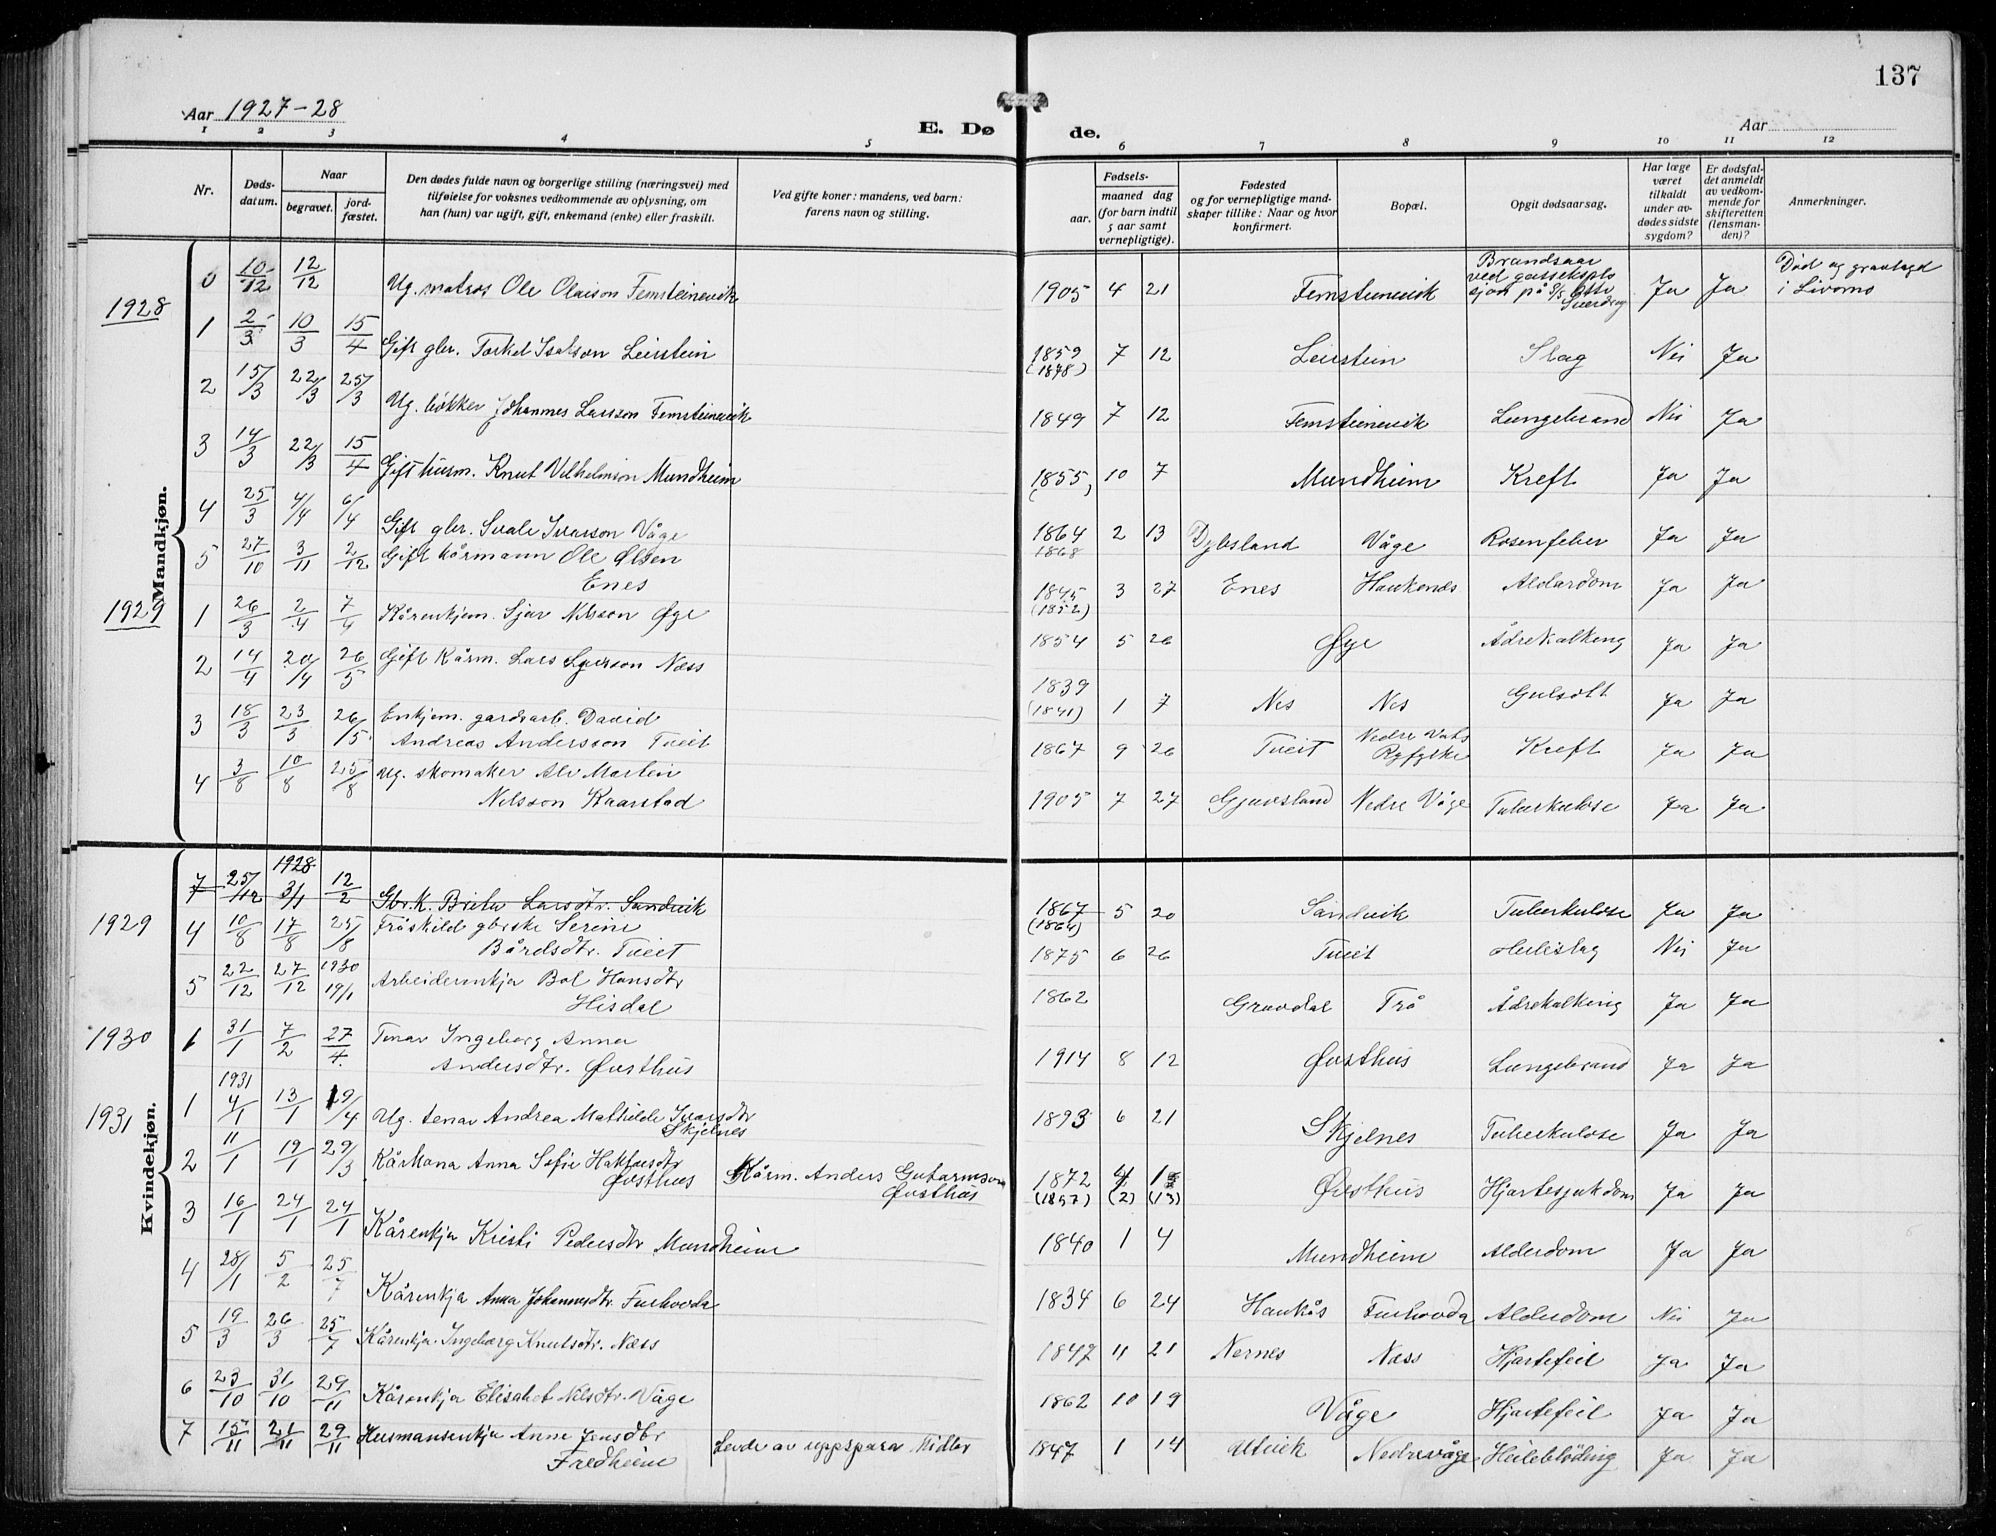 137
Aar 1927-28
E. Dø
de.
Aar
1 2 3 4 5 6 7 8 9 10 11 12
Nr.
Døds-
datum.
Naar
begravet.
jord-
fæstet.
Den dødes fulde navn og borgerlige stilling (næringsvei) med
tilføielse for voksnes vedkommende av oplysning, om
han (hun) var ugift, gift, enkemand (enke) eller fraskilt.
Ved gifte koner: mandens, ved barn:
farens navn og stilling.
Fødsels-
aar.
maaned dag
(for barn indtil
5 aar samt
vernepligtige).
Fødested
og for vernepligtige mand-
skaper tillike: Naar og hvor
konfirmert.
Bopæl.
Opgit dødsaarsag.
Har læge
været
tilkaldt
under av-
dødes sidste
sygdom?
Er dødsfal-
det anmeldt
av vedkom-
mende for
skifteretten
(lensman-
den)?
Anmerkninger.
Mandkjøn.
0 10/12 12/12 Ug. matros Ole Olaison Femsteinevik 1905 4 21 Femsteinevik Brandsaar
ved gasseksplo
sjon på S/S Otto
Sverdrup Ja Ja Død og gravlagd
i Livorno
1928
1 2/3 10/3 15/4 Gift gbr. Torkel Isakson Leirstein 1859 7 12 Leirstein Slag Nei Ja
(1848)
2 15/3 22/3 25/3 Ug. bøkker Johannes Larsson Femsteinevik 1849 7 12 Femsteinevik Lungebrand Nei Ja
3 14/3 22/3 15/4 Gift husm. Knut Vilhelmson Mundheim 1855 10 7 Mundheim Kreft Ja Ja
4 25/3 4/4 6/4 Gift gbr. Svale Ivarson Våge 1864 2 13 Dybsland Våge Rosenfeber Ja Ja
1868
5 27/10 3/11 2/12 Gift kårmann Ole Olsen
Enes 1845 3 27 Enes Haukenæs Alderdom Ja Ja
(1852)
1929
1 26/3 2/4 7/4 Kårenkjem. Sjur Nilsson Øye 1854 5 26 Øye Ådrekalking Ja Ja
2 14/4 20/4 26/5 Gift Kårm. Lars Sjurson Næss 1839 1 7 Nes Nes Gulsott Ja Ja
(1841)
3 18/3 23/3 26/5 Enkjem. gardsarb. David
Andreas Andersson Tveit 1867 9 26 Tveit Nedre Vats
Ryfylke Kreft Ja Ja
4 3/8 10/8 25/8 Ug. skomaker Alv Martin
Nilsson Kaarstad 1905 7 27 Gjuvsland Nedre Våge Tuberkulose Ja Ja
Kvindekjøn.
7 25/12 1928 3/1 12/2 Gbr.k. Brita Larsdtr. Sandvik 1867 5 20 Sandvik Tuberkulose Ja Ja
(1864)
1929
4 10/8 17/8 25/8 Fråskild gbrske Serine
Bårdsdtr. Tveit 1875 6 26 Tveit Heileslag Nei Ja
5 22/12 27/12 1930 19/1 Arbeiderenkja Bol Hansdtr
Hisdal 1862 Gravdal Trå Ådrekalking Ja Ja
1930
1 31/1 7/2 27/4. Tenar Ingeborg Anna
Andersdtr. Øvsthus 1914 8 12 Øvsthus Lungebrand Ja Ja
1931
1 1931 4/1 13/1 19/4 Ug. tenar Andrea Mathilde Ivarsdtr
Skjelnes 1893 6 21 Skjelnes Tuberkulose Ja Ja
2 11/1 19/1 29/3 Kårkona Anna Sofie Haktorsdtr
Øvsthus Kårm. Anders Gutormson
Øvsthus 1872 4 Øvsthus Hjartesjukdom Ja Ja
(1857) (2) (13)
3 16/1 24/1 24/1 Kårenkja Kristi Pedersdtr Mundheim 1840 1 4 Mundheim Alderdom Ja Ja
4 28/1 5/2 25/7 Kårenkja Anna Johannesdtr. Furhovda 1834 6 24 Haukås Furhovda Alderdom Nei Ja
5 19/3 26/3 25/7 Kårenkja Ingebærg Knutsdtr. Næss 1847 11 21 Nernes Næss Hjartefeil Ja Ja
6 23/10 31/10 29/11 Kårenkja Elisabet Nilsdtr. Våge 1862 10 19 Våge Hjartefeil Ja Ja
7 15/11 21/11 29/11 Husmansenkja Anne Jensdtr
Fredheim Levde av uppspara midlar 1847 1 14 Utvik Nedrevåge Heileblöding Ja Ja